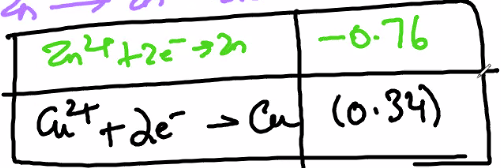 Zn → Zn
Zn²⁺+2e⁻→Zn -0.76
Cu²⁺+2e⁻→Cu (0.34)